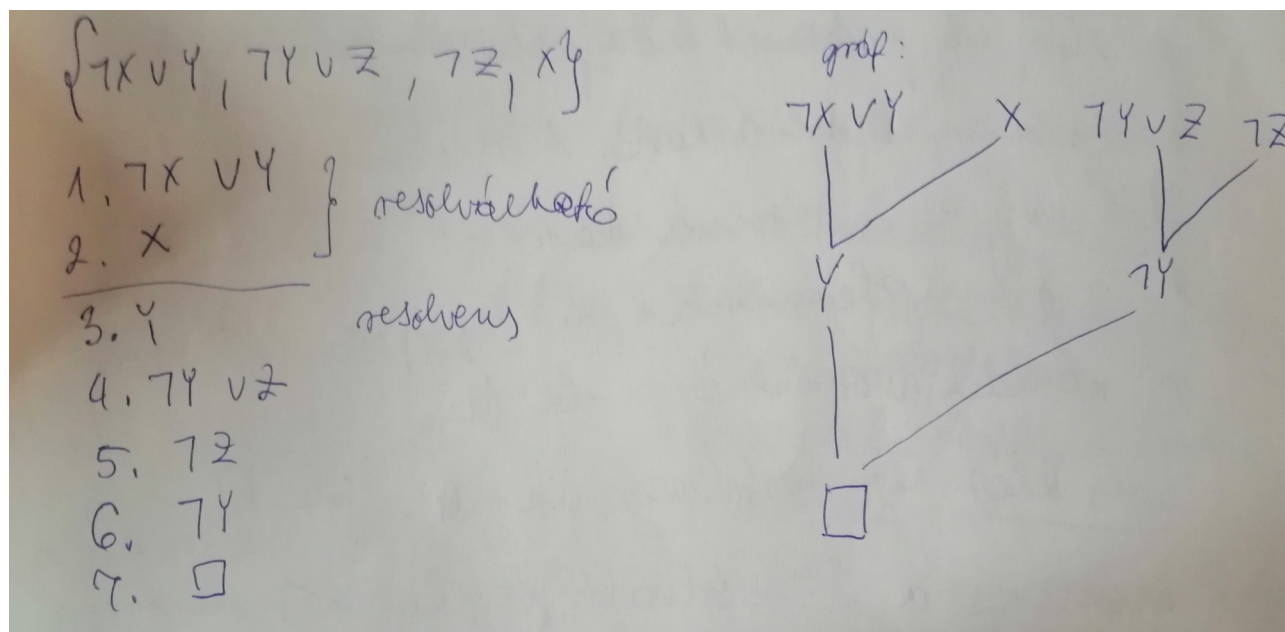 {¬X∨Y, ¬Y∨Z, ¬Z, X}
1. ¬X ∨Y } resolválható
2. X
3. Y resolvens
4. ¬Y ∨Z
5. ¬Z
6. ¬Y
7. □
gráf:
¬X∨Y X ¬Y∨Z ¬Z
Y ¬Y
□